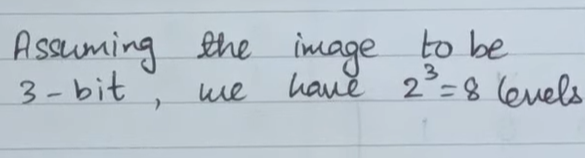 Assuming the image to be
3-bit, we have 2³=8 levels